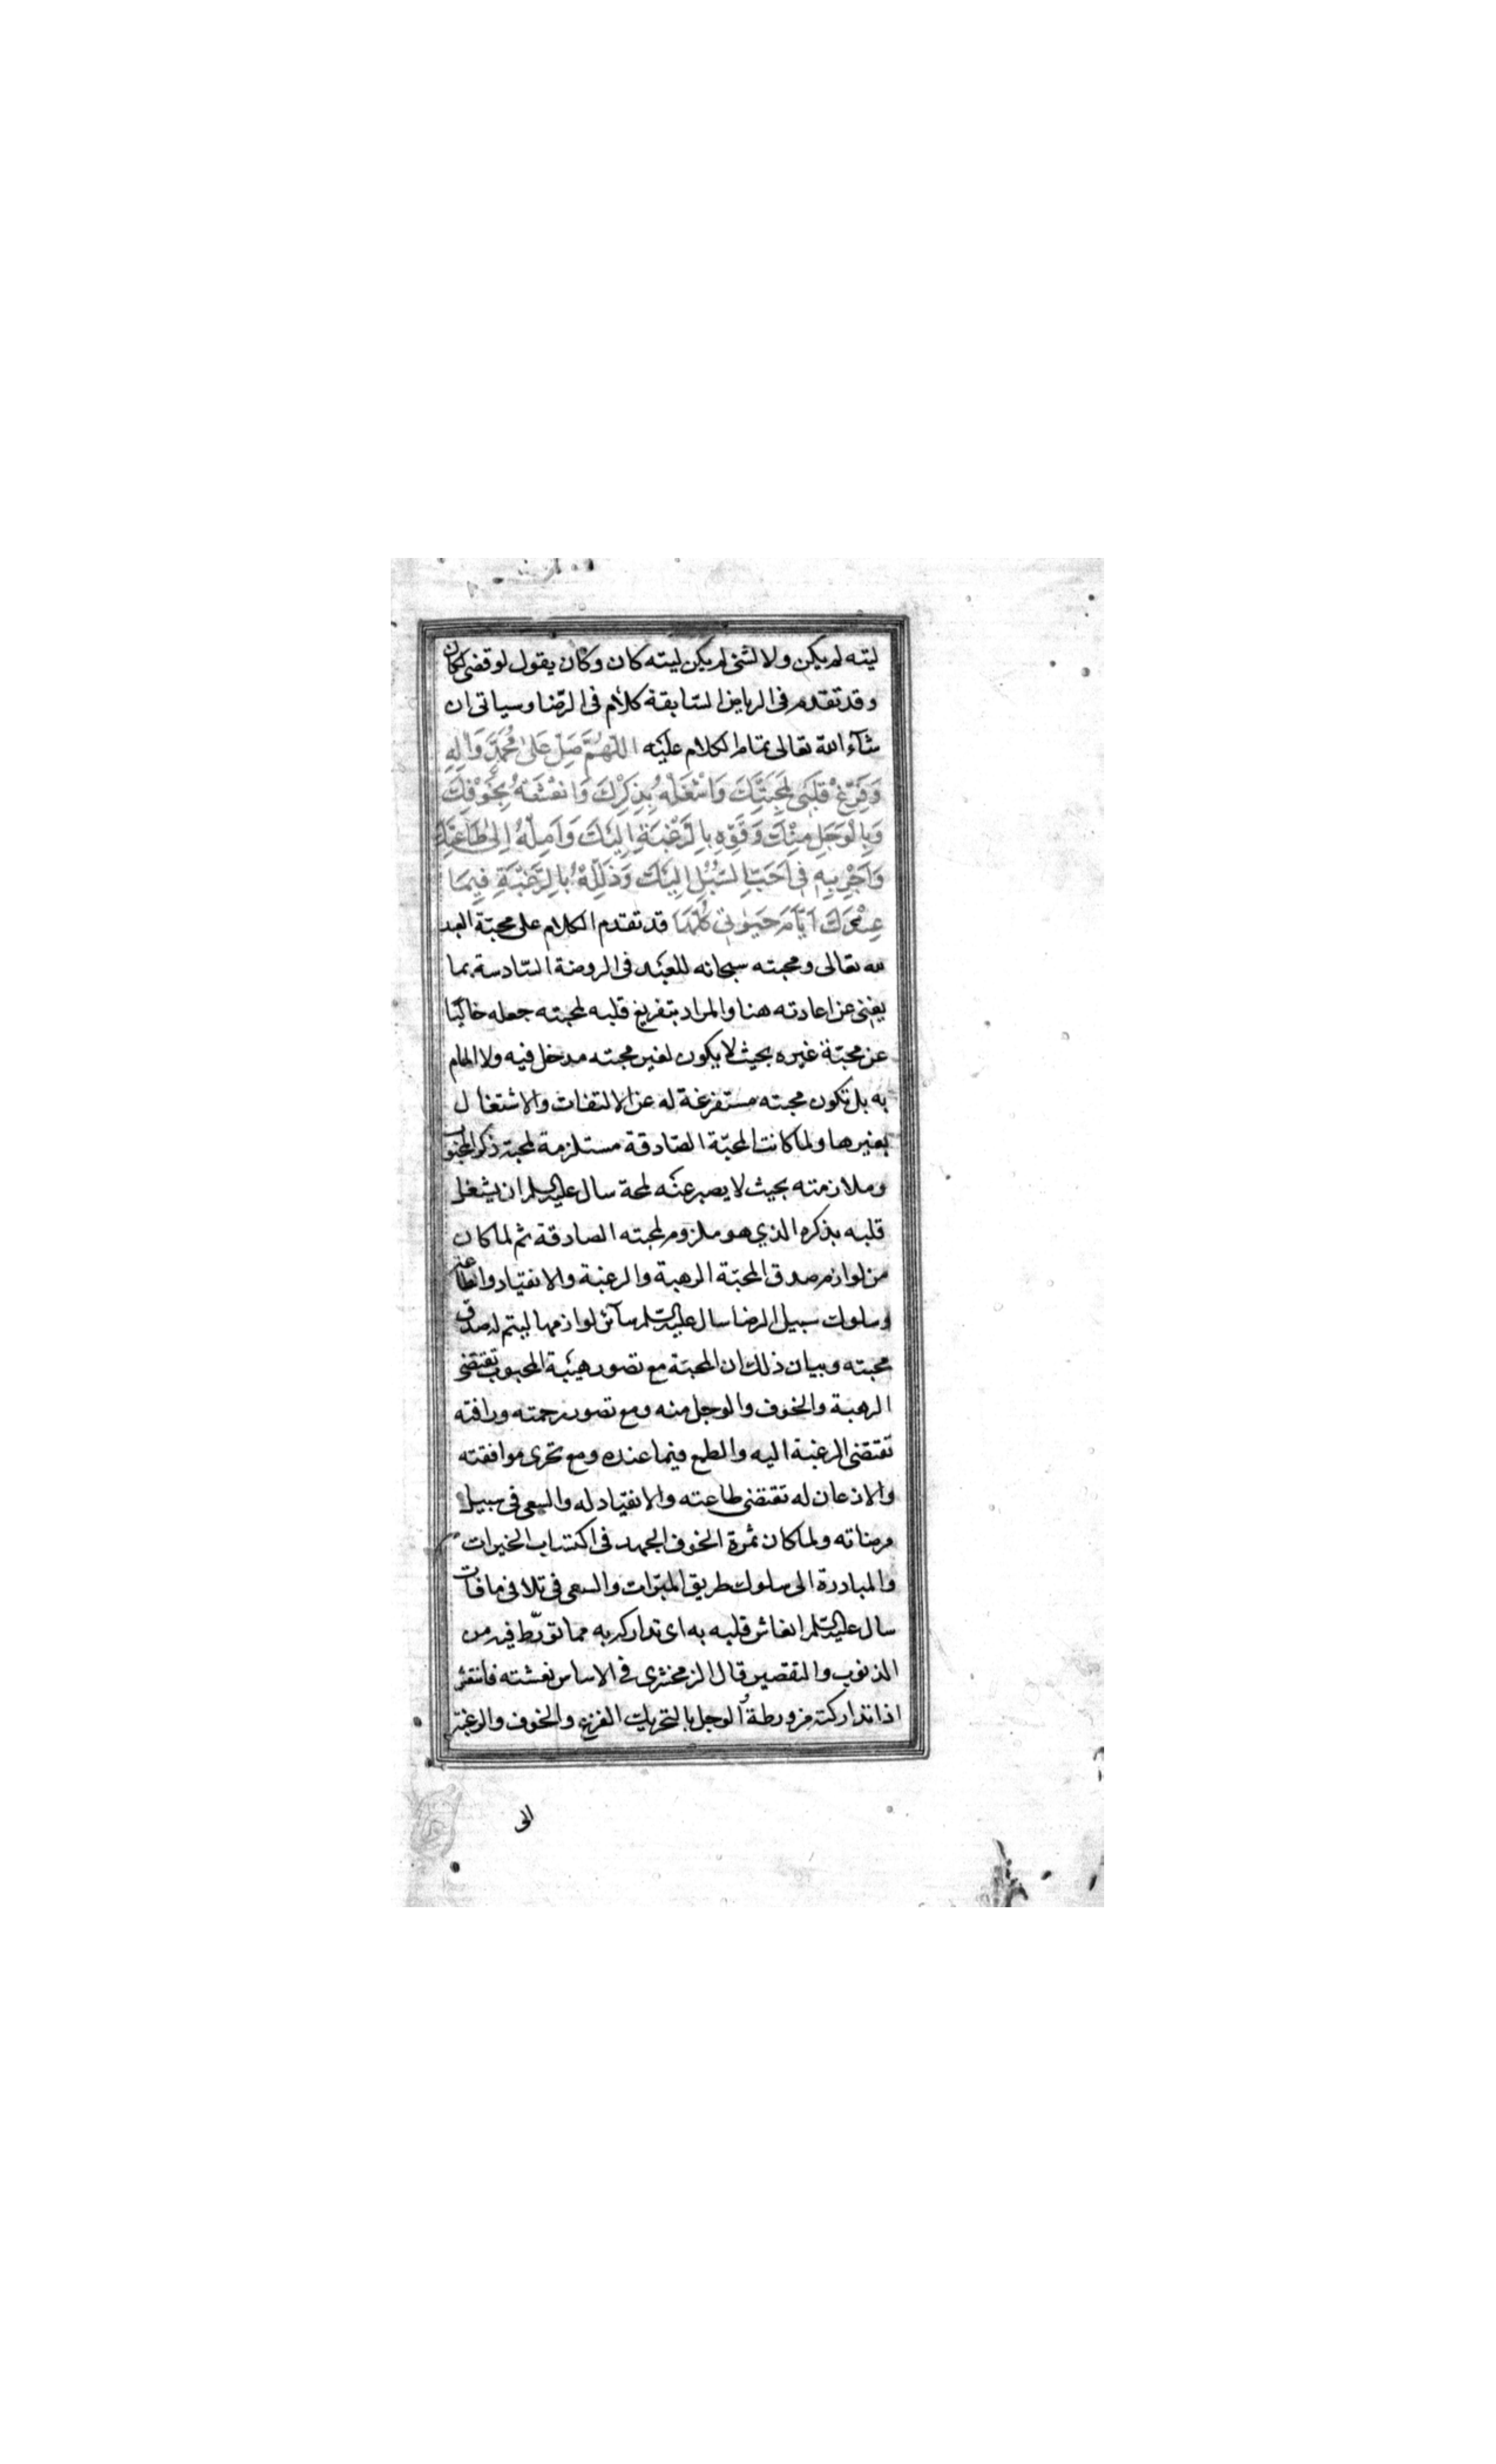 ليته لم يكن ولا لشئ لم يكن ليته كان وكان يقول لو قضى لكان
وقد تقدم فى الرياض السّابقة كلام فى الرّضا وسياتى ان
شآء الله تعالى تمام الكلام عليه اَللّهُمَّ صَلِّ عَلىٰ مُحَمَّدٍ وَاٰلِهِ
وَفَرِّغْ قَلْبى لِمَحَبَّتِكَ وَاشْغَلْهُ بِذِكْرِكَ وَانْعَشْهُ بِخَوْفِكَ
وَبِالْوَجَلِ مِنْكَ وَقَوِّهِ بِالرَّغْبَةِ اِلَيْكَ وَاَمِلْهُ اِلىٰ طَاعَتِكَ
وَاَجْرِ بِهِ فى اَحَبِّ السُّبُلِ اِلَيْكَ وَذَلِّلْهُ بِالرَّغْبَةِ فِيمَا
عِنْدَكَ اَيَّامَ حَيٰوتى كُلِّهَا قد تقدم الكلام على محبّة العبد
لله تعالى ومحبته سبحانه للعبد فى الروضة السّادسة بما
يغنى عن اعادته هنا والمراد بتفريغ قلبه لمحبته جعله خاليًا
عن محبّة غيره بحيث لا يكون لغير محبته مدخل فيه ولا المام
به بل تكون محبته مستفرغة له عن الالتفات والاشتغال
بغيرها ولما كانت المحبّة الصّادقة مستلزمة لمحبة ذكر المحبوب
وملازمته بحيث لا يصبر عنه لمحة سال عليه السلم ان يشغل
قلبه بذكره الذي هو ملزوم لمحبته الصادقة ثم لما كان
من لوازم صدق المحبّة الرهبة والرغبة والانقياد واطاعته
وسلوك سبيل الرضا سال عليه السّلم سآئر لوازمها ليتم له صدق
محبته وبيان ذلك ان المحبّة مع تصور هيبة المحبوب تقتضى
الرهبة والخوف والوجل منه ومع تصور رحمته ورافته
تقتضى الرغبة اليه والطمع فيما عنده ومع تحرى موافقته
والاذعان له تقتضى طاعته والانقياد له والسعى فى سبيل
مرضاته ولما كان ثمرة الخوف الجهد فى اكتساب الخيرات
والمبادرة الى سلوك طريق المبرّات والسعى فى تلافى ما فات
سال عليه السّلم انعاش قلبه به اى تداركه به مما تورّط فيه من
الذنوب والتقصير قال الزمخشرى فى الاساس نعشته فانتعش
اذا تداركته من ورطة والوجل بالتحريك الفزع والخوف والرغبة
الى